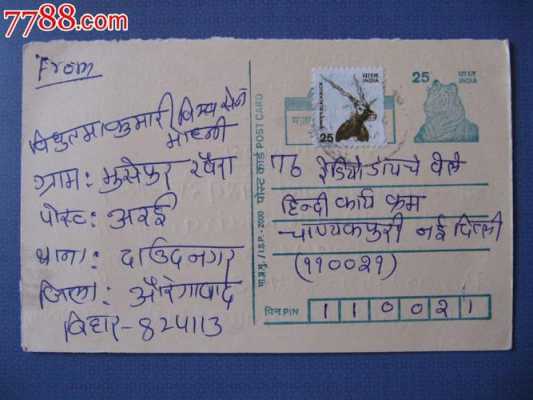 7788.com
From
विधुतमा कुमारी
ग्राम:
पोस्ट: अरई
थाना: दाउदनगर
जिला: औरंगाबाद
बिहार-824113
पोस्ट कार्ड POST CARD
I.S.P.-2000
भारत
INDIA
25
25
भारत
INDIA
To रेडियो डायचे वेले
हिन्दी कार्य क्रम
चाणक्यपुरी नई दिल्ली
(११००२१)
पिन PIN
1 1 0 0 2 1